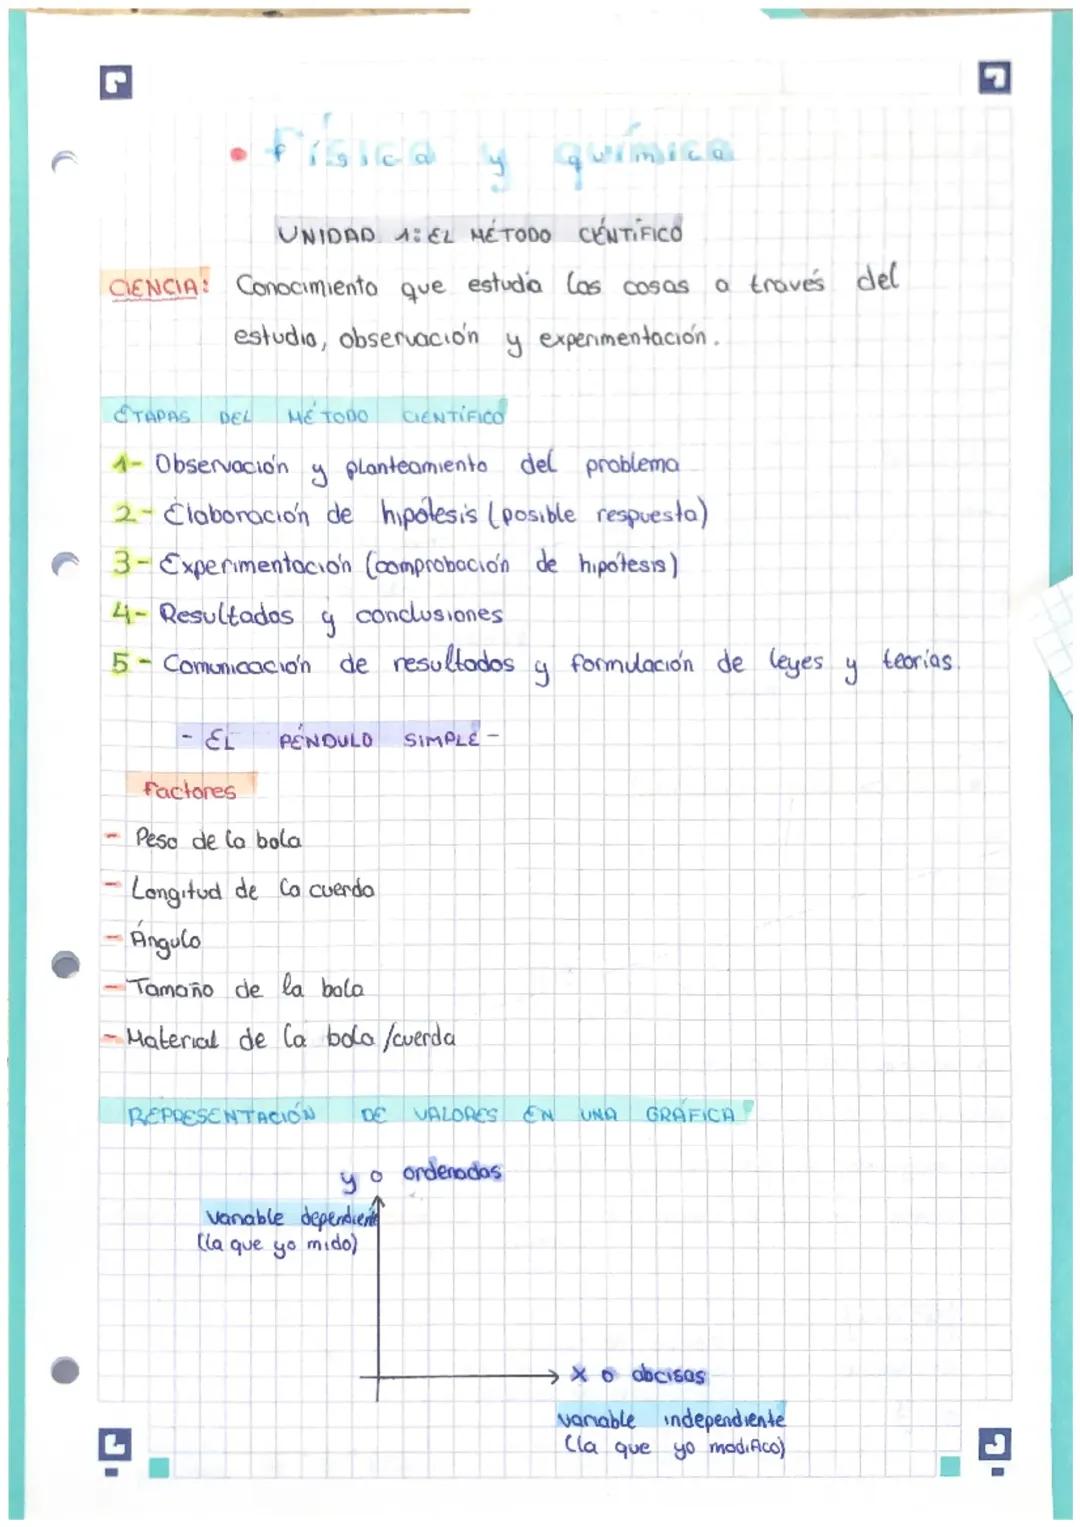 • física y química
UNIDAD 1: EL MÉTODO CÉNTÍFICO
CIENCIA: Conocimiento que estudia las cosas a través del
estudio, observación y experimentación.
ETAPAS DEL MÉTODO CIENTÍFICO
1- Observación y planteamiento del problema
2- Elaboración de hipótesis (posible respuesta)
3- Experimentación (comprobación de hipótesis)
4- Resultados y conclusiones
5- Comunicación de resultados y formulación de leyes y teorías.
- EL PÉNDULO SIMPLE -
factores
- Peso de la bola
- Longitud de la cuerda
- Ángulo
- Tamaño de la bola
- Material de la bola /cuerda
REPRESENTACIÓN DE VALORES EN UNA GRÁFICA
y o ordenadas
variable dependiente
(la que yo mido)
x o abcisas
variable independiente
(la que yo modifico)